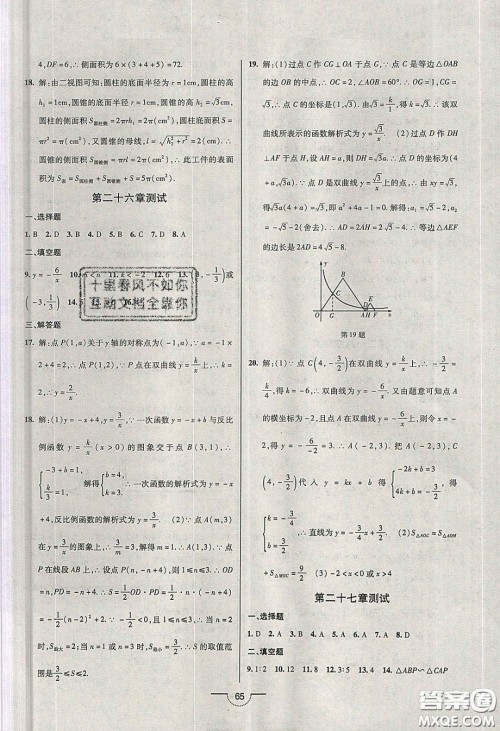 4,DF=6,∴侧面积 6×(3+4+5)=72.
18. 解:由二视图可知:圆柱的底面半径 r=1cm,圆柱的高
h₁=1cm,圆锥的底面半径 r=1cm,圆锥的高 h₂=√3cm,
圆柱的底面积 S底面=π(cm²),圆柱的侧面积 S圆柱侧=
2π(cm²),又圆锥的母线,l=√(h₂²+r²)=2(cm),∴圆
锥的侧面积 S圆锥侧=πrl=2π(cm²),∴此工件的表面
积=S底面+S圆柱侧+S圆锥侧=5π(cm²).
第二十六章测试
一、选择题
1. B 2. D 3. B 4. D 5. B 6. C 7. D 8. A
二、填空题
9. y=-6/x 10. m>1 11. k<-2 12. 6 13. (3,-1/3)或
(-3,1/3) 14.
十里春风不如你
互动文档全靠你
三、解答题
×2+4=2,∴点 P(1,2)在双曲线 y=k/x 上,∴k=2,∴
y=2/x.
18. 解:(1)∵y=-x+4,y=3/x,∵一次函数 y=-x+b 与反比
例函数 y=k/x(x>0)的图象交于点 B(3,1),∴
{-3+b=1, k/3=1. 解得{b=4, k=3. ∴一次函数的解析式为 y=-x
+4,反比例函数的解析式为 y=3/x. (2)∵点 A(m,3)
在 y=3/x 的图象上,∴3=3/m,解得 m=1,∴A(1,3),∵点
P 在线段 AB 上,设点 P(n,-n+4),则 1≤n≤3,∴OD
=n,PD=-n+4,∴S=1/2OD·PD=1/2·n(-n+4)=
-1/2(n-2)²+2,∵-1/2<0,且 1≤n≤3,∴当 n=2 时,
S最大=2,当 n=1 或 n=3 时,S最小=3/2,∴S 的取值范
围是3/2≤S≤2.
19. 解:(1)过点 C 作 CG⊥OA 于点 G,∵点 C 是等边△OAB
的边 OB 的中点,∴OC=2,∠AOB=60°.∴OG=1,CG
=√3,∴点 C 的坐标是(1,√3),由√3=k/1,得 k=√3,∴该双
曲线所表示的函数解析式为 y=√3/x; (2)过点 D 作 DH
⊥AF 于点 H,设 AH=a,则 DH=√3a.∴点 D 的坐标为
(4+a,√3a),∵点 D 是双曲线 y=√3/x 上的点,由 xy=√3,
得√3a(4+a)=√3,即 a²+4a-1=0,解得 a₁=√5-2,a₂=
-√5-2(舍去),∴AD=2AH=2√5-4,∴等边△AEF
的边长是 2AD=4√5-8.
y
B
C
D
O
G
A H F x
第19题
20. 解:(1)∵点 C(4,-3/2)在双曲线 y=k/x 上,∴-3/2=k/4,
∴k=-6,∴双曲线为 y=-6/x,又由题意可知点 A
的横坐标为-2,且点 A 也在双曲线上,则点 A 的纵坐
标:y=-6/-2=3,∴A(-2,3),∴将点 A(-2,3)、
C(4,-3/2)代入 y=kx+b 得{-2k+b=3, 4k+b=-3/2. ∴
{k=-3/4, b=3/2. ∴直线为 y=-3/4x+3/2; (2)S△AOC=S△AOB
+S△BOC=9/2 (3)-2<x<0 或 x>4
第二十七章测试
一、选择题
1. D 2. A 3. C 4. B 5. C 6. A 7. A 8. D
二、填空题
9. 1:2 10. 12 11. 8 12. 3:5 13. 4 14. △ABP∽△CAP
65
答案圈
MXQE.COM